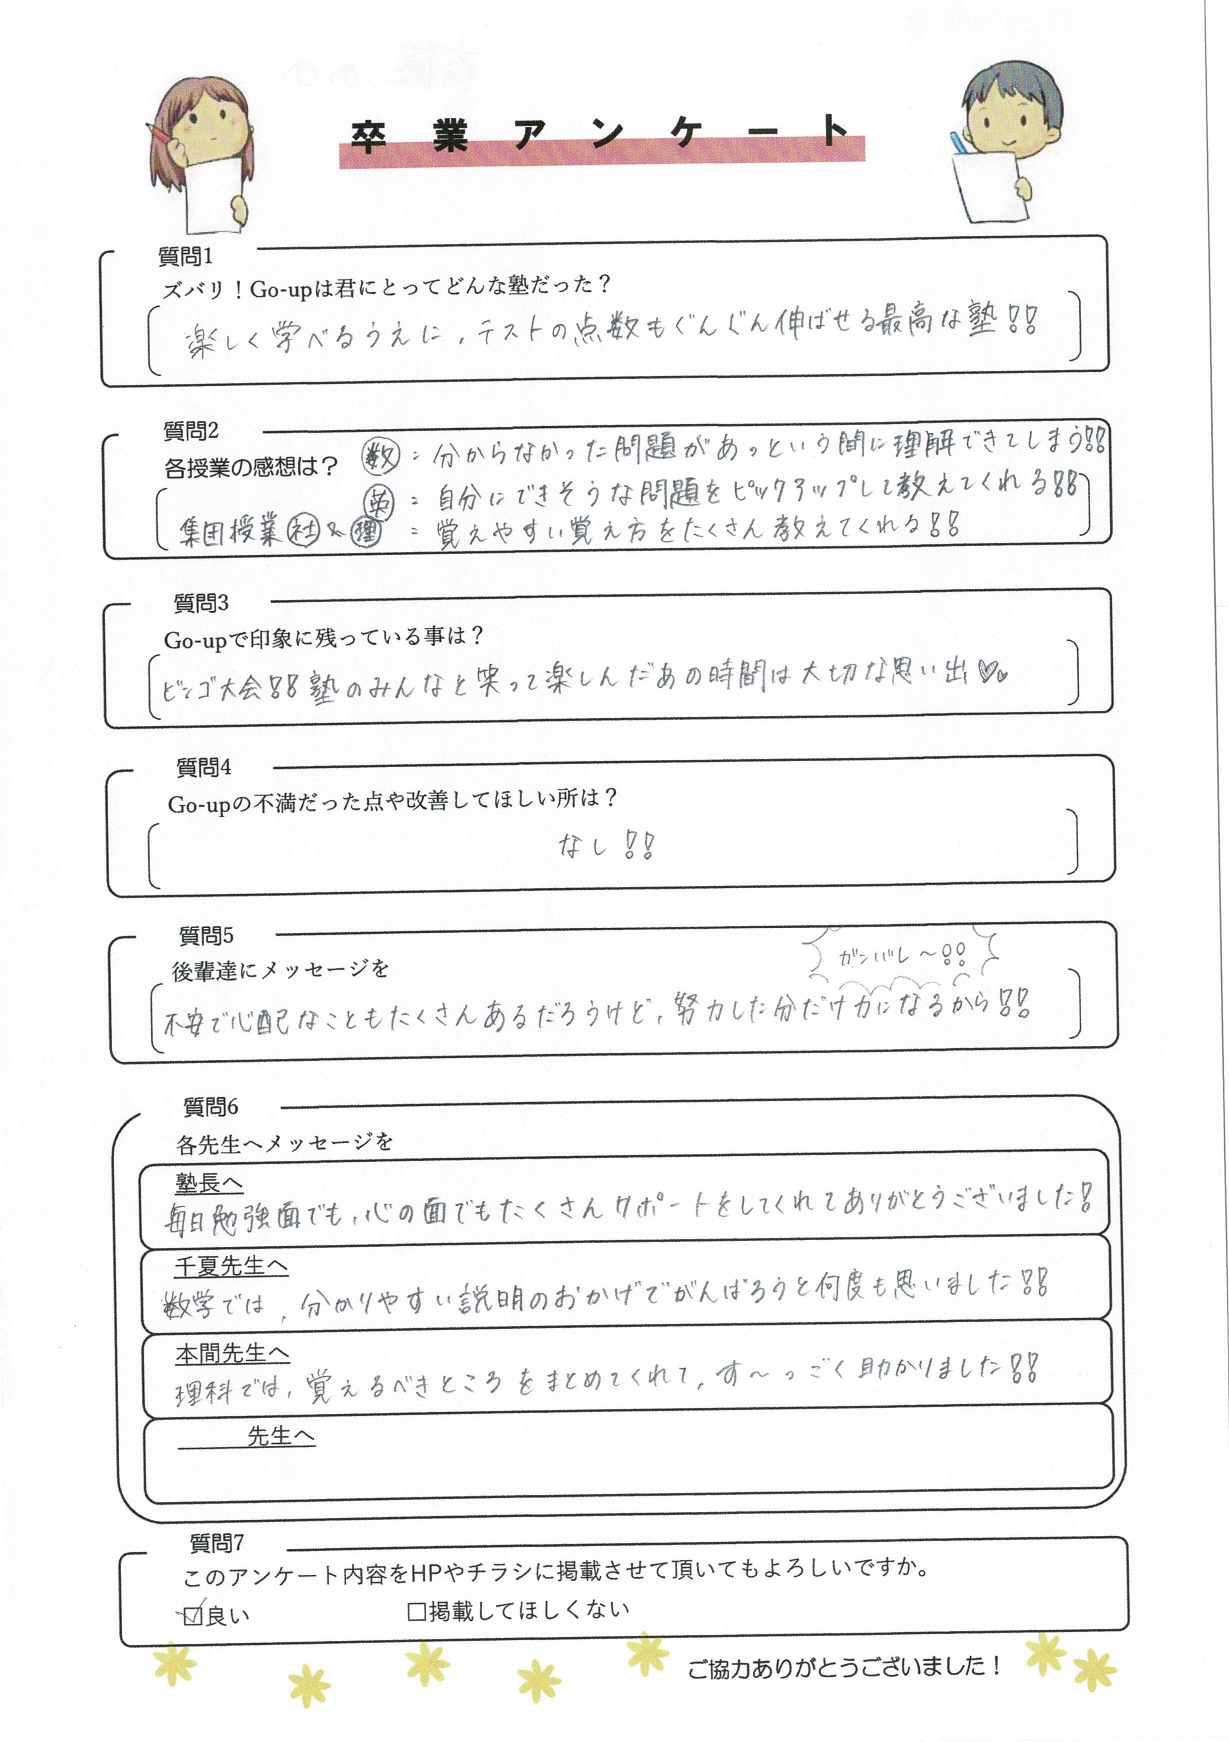 卒業アンケート
質問1
ズバリ！Go-upは君にとってどんな塾だった？
楽しく学べるうえに，テストの点数もぐんぐん伸ばせる最高な塾!!
質問2
各授業の感想は？
数：分からなかった問題があっという間に理解できてしまう!!
英：自分にできそうな問題をピックアップして教えてくれる!!
集団授業社&理：覚えやすい覚え方をたくさん教えてくれる!!
質問3
Go-upで印象に残っている事は？
ビンゴ大会!!塾のみんなと笑って楽しんだあの時間は大切な思い出♡♡
質問4
Go-upの不満だった点や改善してほしい所は？
なし!!
質問5
後輩達にメッセージを
ガンバレ〜!!
不安で心配なこともたくさんあるだろうけど，努力した分だけ力になるから!!
質問6
各先生へメッセージを
塾長へ
毎日勉強面でも，心の面でもたくさんサポートをしてくれてありがとうございました!
千夏先生へ
数学では，分かりやすい説明のおかげでがんばろうと何度も思いました!!
本間先生へ
理科では，覚えるべきところをまとめてくれて，す〜っごく助かりました!!
先生へ
質問7
このアンケート内容をHPやチラシに掲載させて頂いてもよろしいですか。
☑良い　□掲載してほしくない
ご協力ありがとうございました！